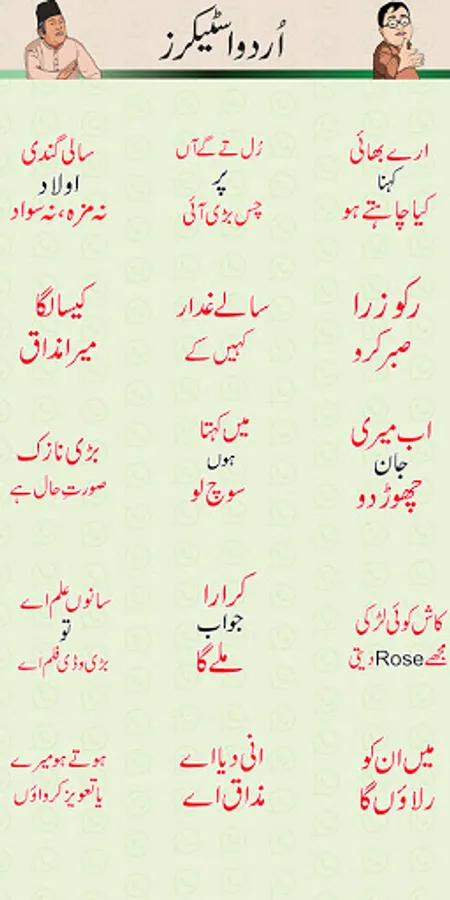 اُردو اسٹیکرز
ارے بھائی
کہنا
کیا چاہتے ہو
رُل تے گے آں
پر
چس بڑی آئی
سالی گندی
اولاد
نہ مزہ، نہ سواد
رکو زرا
صبر کرو
سالے غدار
کہیں کے
کیسا لگا
میرا مذاق
اب میری
جان
چھوڑ دو
میں کہتا
ہوں
سوچ لو
بڑی نازک
صورتِ حال ہے
کاش کوئی لڑکی
مجھے Rose دیتی
کرارا
جواب
ملے گا
سانوں علم اے
تو
بڑی وڈی فلم اے
میں ان کو
رلاؤں گا
انی دیا اے
مذاق اے
ہوتے ہو میرے
یا تعویز کرواؤں